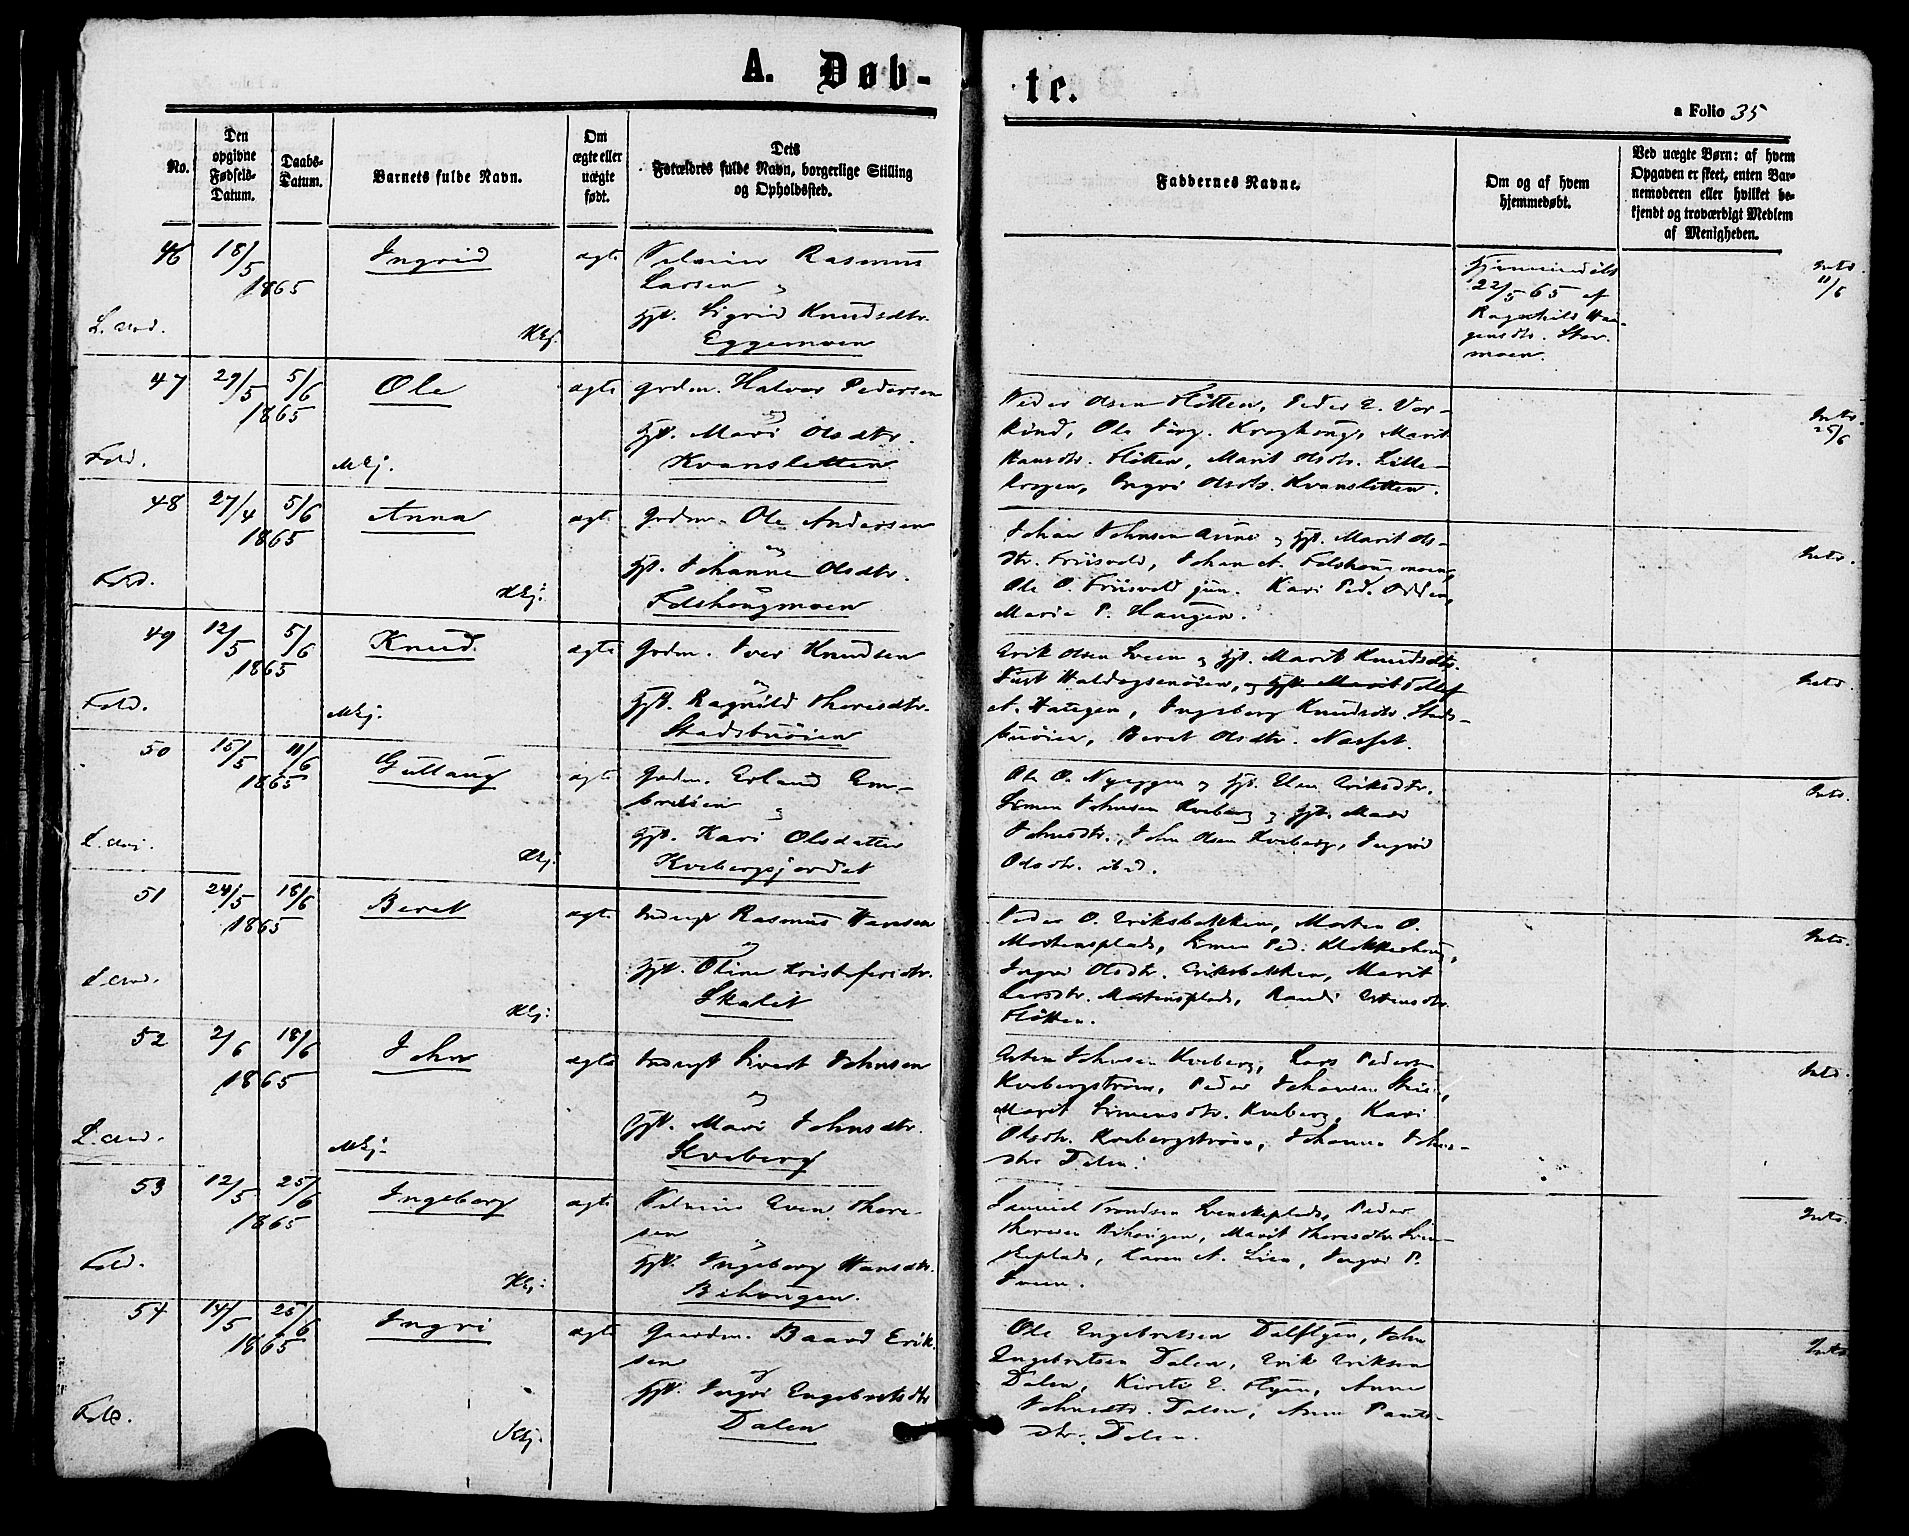 A. Døb-
te.
a Folio 35
No.
Den
opgivne
Fødsels-
Datum.
Daabs-
Datum.
Barnets fulde Navn.
Om
ægte eller
uægte
født.
Dets
Forældres fulde Navn, borgerlige Stilling
og Opholdssted.
Faddernes Navne.
Om og af hvem
hjemmedøbt.
Ved uægte Børn: af hvem
Opgaven er skeet, enten Bar-
nemoderen eller hvilket be-
kjendt og troværdigt Medlem
af Menigheden.
46 18/5 1865 Ingrid ægte Rasmus
Larsen og
Sigrid Knudsdtr.
Eggemoen
22/5 65 af
Ragnhild Haa-
gensdtr. Stor-
moen.
Intr. 11/6
47 29/5 5/6 1865 Ole ægte Grdm. Halvor Pedersen
og
Mari Olsdtr.
Kvansletten
Fold.
Peder Olsen Fløtten, Peder E. Vor-
kind, Ole Jörg. Kroghoug, Marit
Hansdtr. Fløtten, Marit Olsdtr. Lille-
krogen, Ingri Olsdtr. Kvansletten.
Intr. 25/6
48 27/4 5/6 1865 Anna ægte Grdm. Ole Andersen
og
Johanne Olsdtr.
Folshougmoen
Fold.
Johan Johnsen Aune og Marit Ols-
dtr. Friisvold, Johan A. Folshougmoen,
Ole O. Friisvold jun. Kari Ped. Odden,
Marie P. Haugen.
Intr.
49 12/5 5/6 1865 Knud. ægte Grdm. Iver Knudsen
og
Ragnild Thoresdtr.
Stadsbuøien
Fold.
Erik Olsen Sveen og Marit Knudsdtr.
A. Haugen, Ingeborg Knudsdtr. Stads-
buøien, Beret Olsdtr.
Intr.
50 15/5 11/6 1865 Gullaug ægte Grdm. Erland Em-
bretsen
og
Kari Olsdatter
Kvebergsjordet
Ole O. Nyeggen og Elen Eriksdtr.
Simen Johnsen Kveberg og Mari
Johnsdtr., John Olsen Kveberg, Ingrid
Olsdtr. ibid.
Intr.
51 24/5 18/6 1865 Beret ægte Inderst Rasmus Hansen
og
Oline Kristofersdtr.
Skalet
Peder O. Eriksbakken, Morten O.
Mortensplads, Simen Ped. Klokkerhoug,
Ingri Olsdtr. Eriksbakken, Marit
Larsdtr. Mortensplads, Randi
Fløtten.
Intr.
52 2/6 18/6 1865 John ægte Inderst Sivert Johnsen
og
Mari Johnsdtr.
Kveberg
Esten Johnsen Kveberg, Lars Peders.
Kvebergstrøm, Peder Johansen
Marit Simensdtr. Kveberg, Kari
Olsdtr. Kvebergstrøm, Johanne Johns-
dtr. Dalen.
Intr.
53 12/5 25/6 1865 Ingeborg ægte Even Thore-
sen
og
Ingeborg Hansdtr.
Bihougen.
Fold.
Samuel Trondsen Svenskeplads, Peder
Thoresen Bihougen, Marit Thoresdtr. Sven-
skeplads, Karen A. Lien, Ingri P.
Sveen.
Intr.
54 14/5 25/6 1865 Ingri ægte Gaardm. Baard Erik-
sen
og
Ingri Engebretsdtr.
Dalen
Fold.
Ole Engebretsen Dalflyen, John
Engebretsen Dalen, Erik Eriksen
Dalen, Kirsti E. Flyen, Anne
Johnsdtr. Dalen, Anne Pauls-
dtr. Dalen.
Intr.